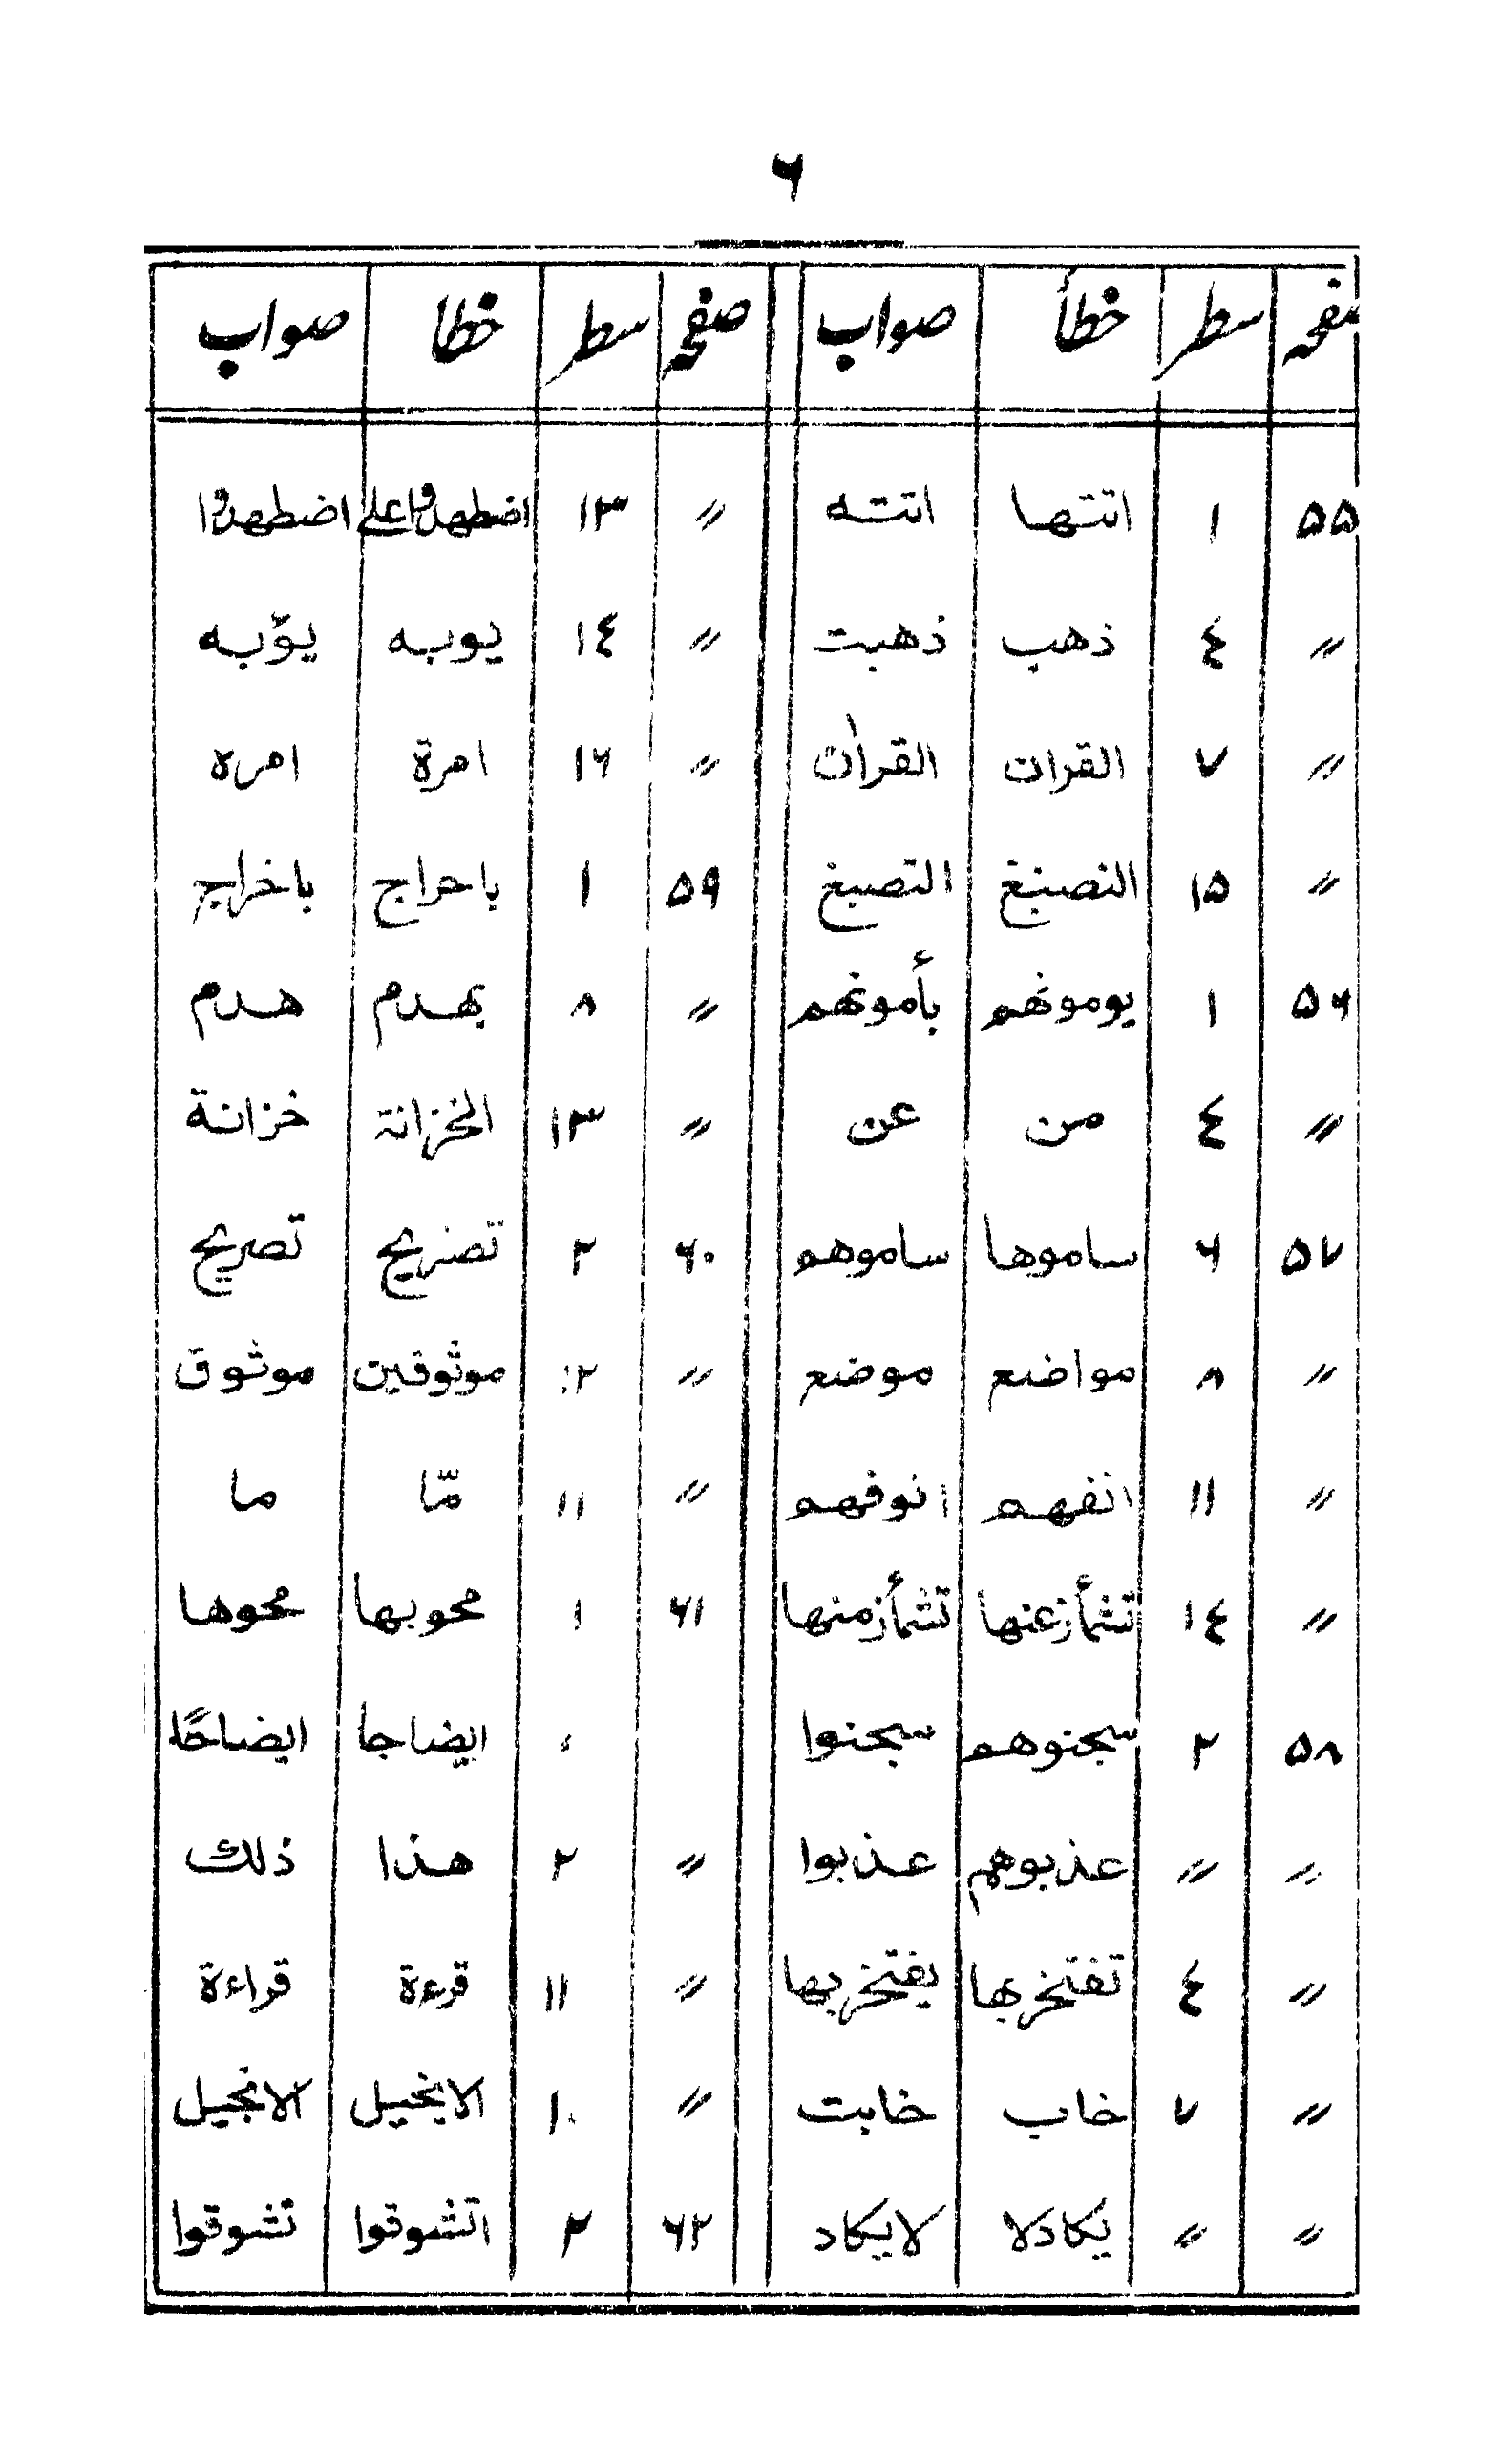 ٦
صفحه سطر خطأ صواب صفحه سطر خطا صواب
٥٥ ١ اتتها اتته 〃 ١٣ اضطهدوا على اضطهدوا
〃 ٤ ذهب ذهبت 〃 ١٤ يوبه يؤبه
〃 ٧ القران القرأن 〃 ١٦ امرة امره
〃 ١٥ النصنبغ التصبغ ٥٩ ١ باحراج باخراج
٥٦ ١ يومونهم يأمونهم 〃 ٨ بهدم هدم
〃 ٤ من عن 〃 ١٣ الخزانة خزانة
٥٧ ٦ ساموها ساموهم ٦٠ ٢ تضريح تصريح
〃 ٨ مواضع موضع 〃 موثوقين موثوق
〃 ١١ انفهم انوفهم 〃 ١١ مّا ما
〃 ١٤ تشمأز عنها تشمأز منها ٦١ ١ محوبها محوها
٥٨ ٢ سجنوهم سجنوا ايضاجا ايضاحًا
〃 〃 عذبوهم عذبوا 〃 ٢ هذا ذلك
〃 ٤ تفتخر بها يفتخر بها 〃 ١١ قرءة قراءة
〃 ٧ خاب خابت 〃 ١٠ الانخيل الانجيل
〃 〃 يكاد لا لا يكاد ٦٢ ٢ اتشوقوا تشوقوا